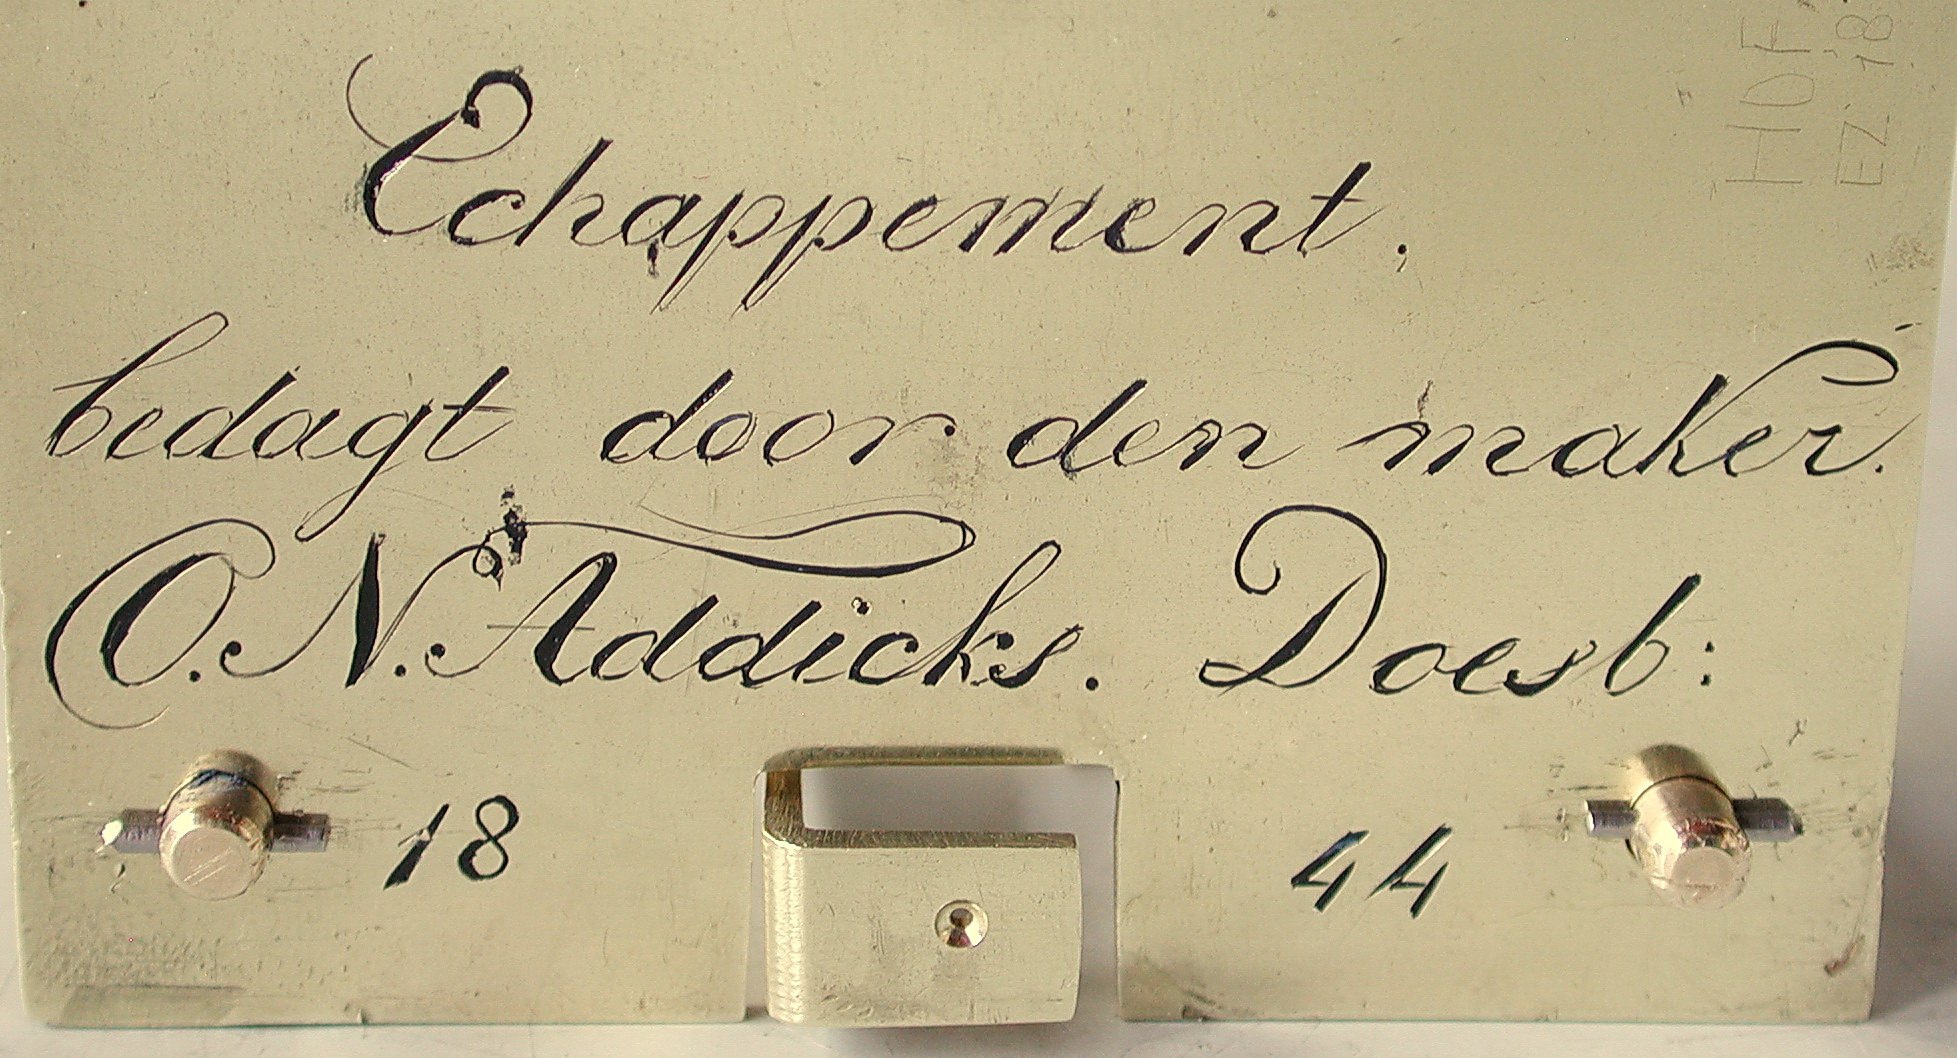 Echappement.
bedagt door den maker.
O. N. Addicks. Doesb:
18 44
HOF
EZ 18